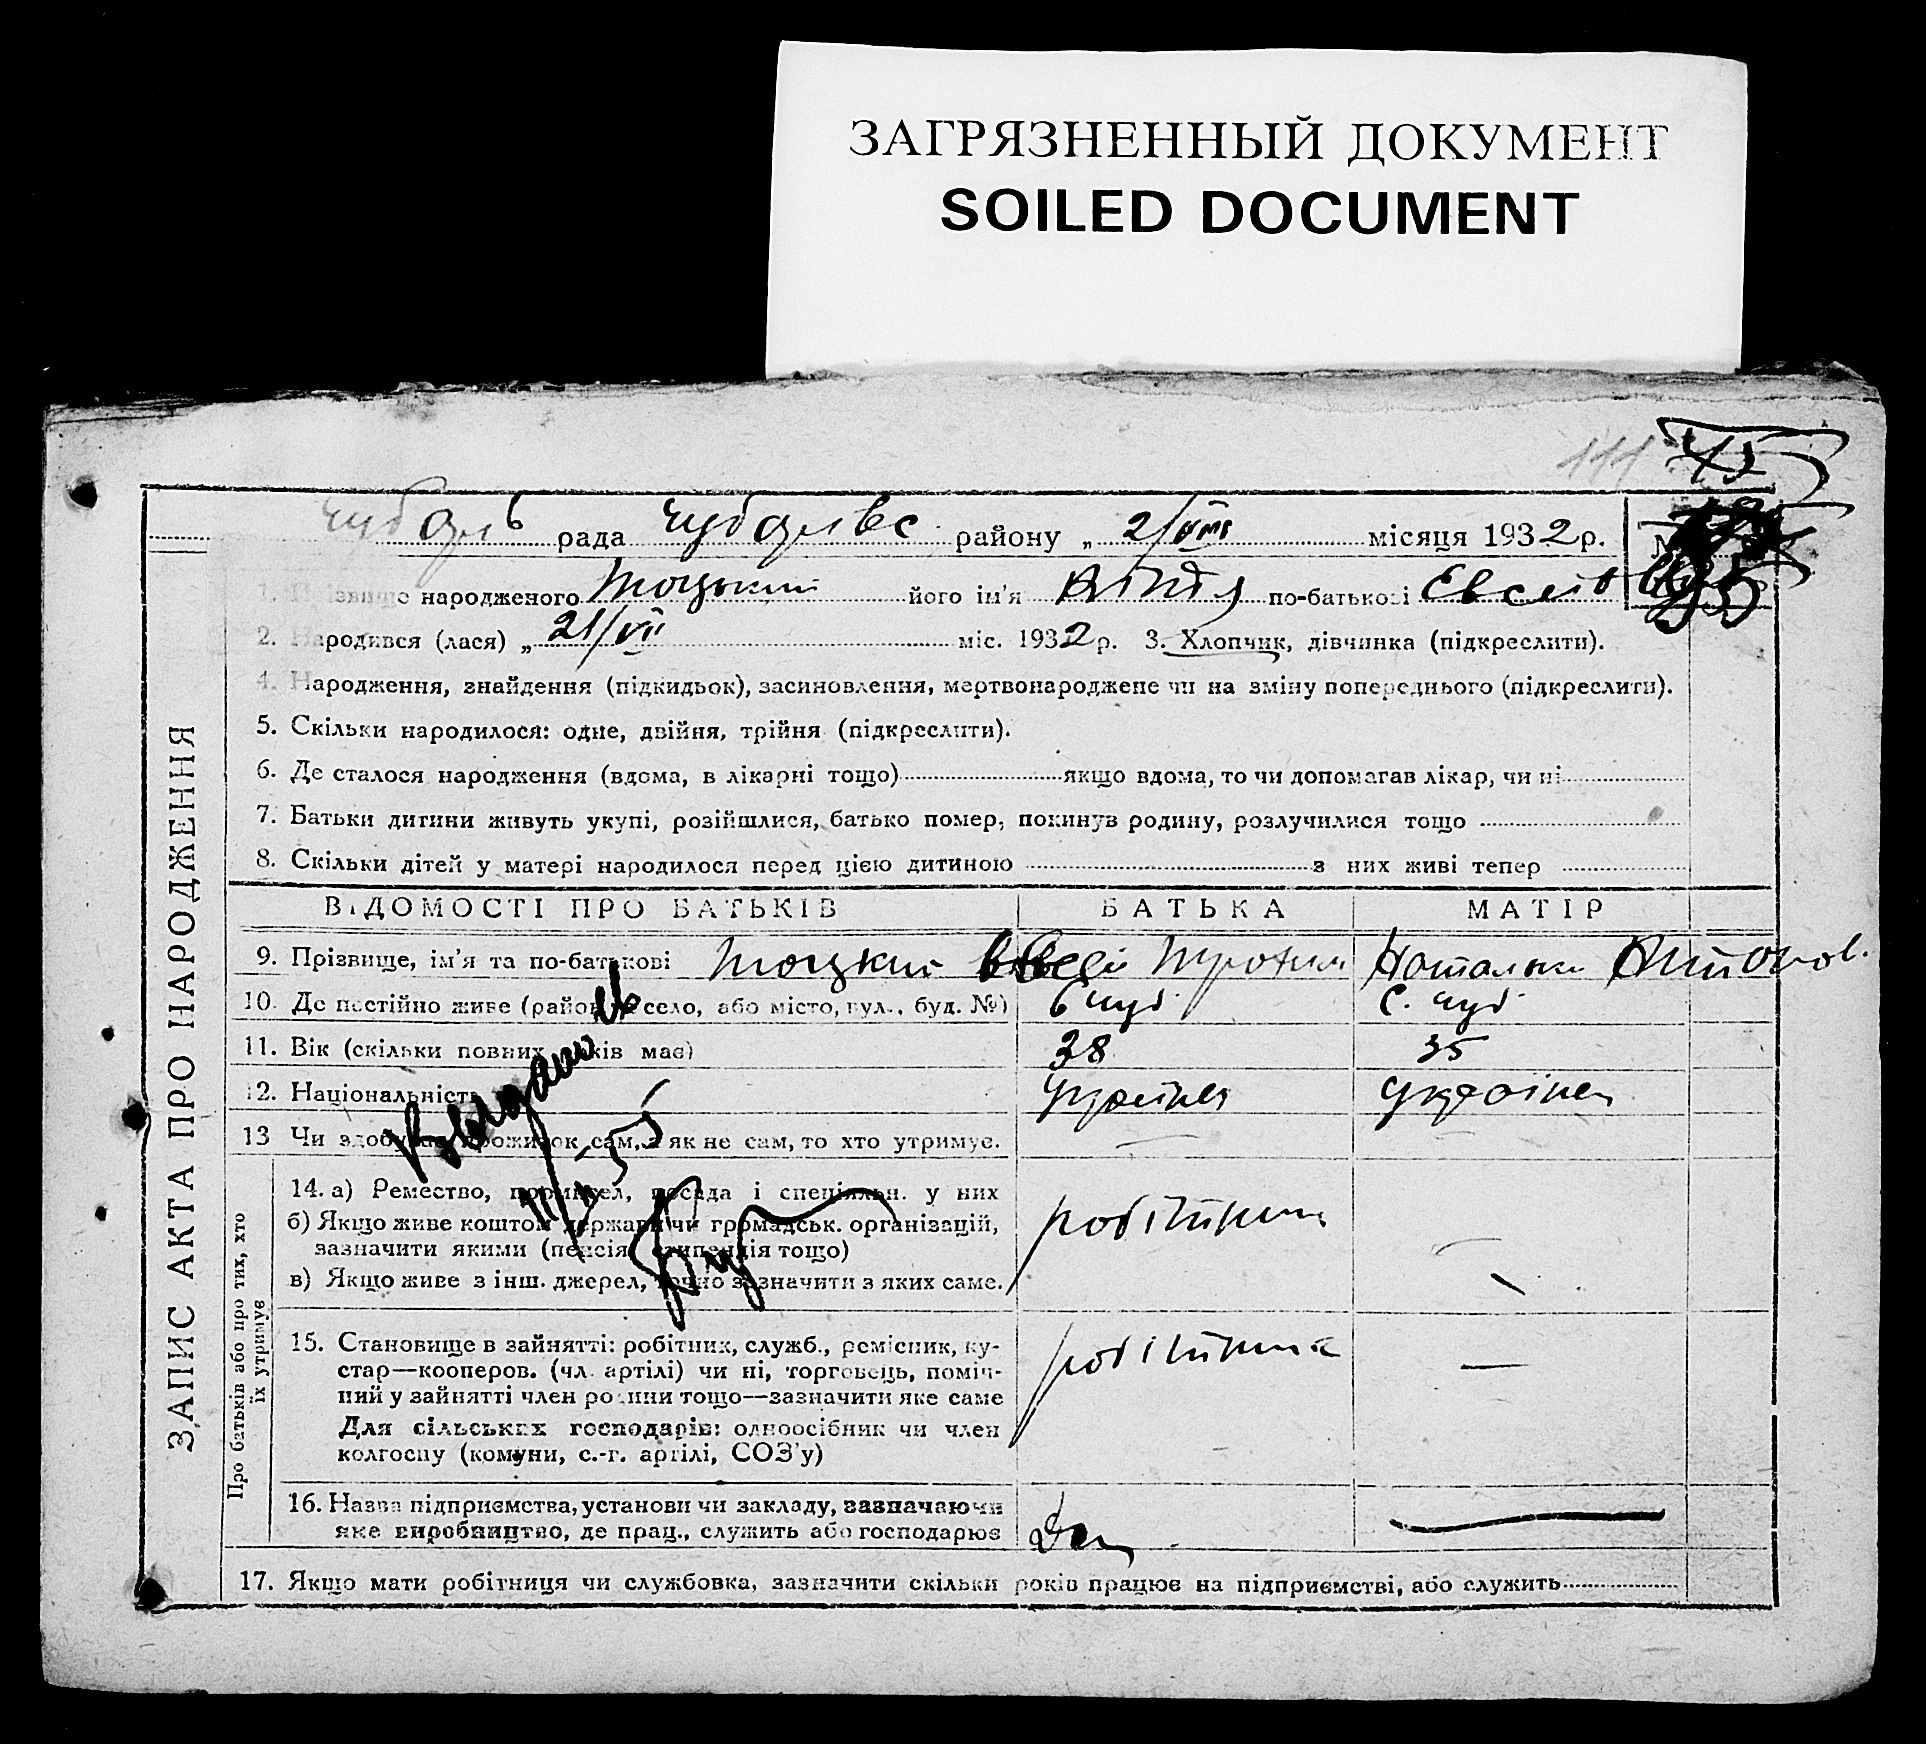 ЗАГРЯЗНЕННЫЙ ДОКУМЕНТ
SOILED DOCUMENT
111 45
рада району „ 2/VIII місяця 1932 р.
народженого Тоцький його ім'я по-батькові Евсеів
2. Народився (лася) „ 21/VII міс. 1932 р. 3. Хлопчик, дівчинка (підкреслити).
4. Народження, знайдення (підкидьок), засиновлення, мертвонароджене чи на зміну попереднього (підкреслити).
5. Скільки народилося: одне, двійня, трійня (підкреслити).
6. Де сталося народження (вдома, в лікарні тощо) якщо вдома, то чи допомагав лікар, чи ні
7. Батьки дитини живуть укупі, розійшлися, батько помер, покинув родину, розлучилися тощо
8. Скільки дітей у матері народилося перед цією дитиною з них живі тепер
ВІДОМОСТІ ПРО БАТЬКІВ БАТЬКА МАТІР
9. Прізвище, ім'я та по-батькові Тоцький Наталька Антонов.
10. Де постійно живе (район, село, або місто, вул., буд. №) с. Чуб
11. Вік (скільки повних років має) 38 35
12. Національність Україн Україн
13 Чи здобував прожиток сам, а як не сам, то хто утримує.
14. а) Ремество, промисел, посада і спеціяльн. у них робітник
б) Якщо живе коштом держави чи громадськ. організацій,
зазначити якими (пенсія, стипендія тощо)
в) Якщо живе з інш. джерел, точно зазначити з яких саме.
15. Становище в зайнятті: робітник, служб., ремісник, ку-
стар—кооперов. (чл. артілі) чи ні, торговець, поміч-
ний у зайнятті член родини тощо—зазначити яке саме
Для сільських господарів: одноосібник чи член
колгоспу (комуни, с.-г. артілі, СОЗ'у)
робітник —
16. Назва підприємства, установи чи закладу, зазначаючи
яке виробництво, де прац., служить або господарює
17. Якщо мати робітниця чи службовка, зазначити скільки років працює на підприємстві, або служить
ЗАПИС АКТА ПРО НАРОДЖЕННЯ
Про батьків або про тих, хто
їх утримує